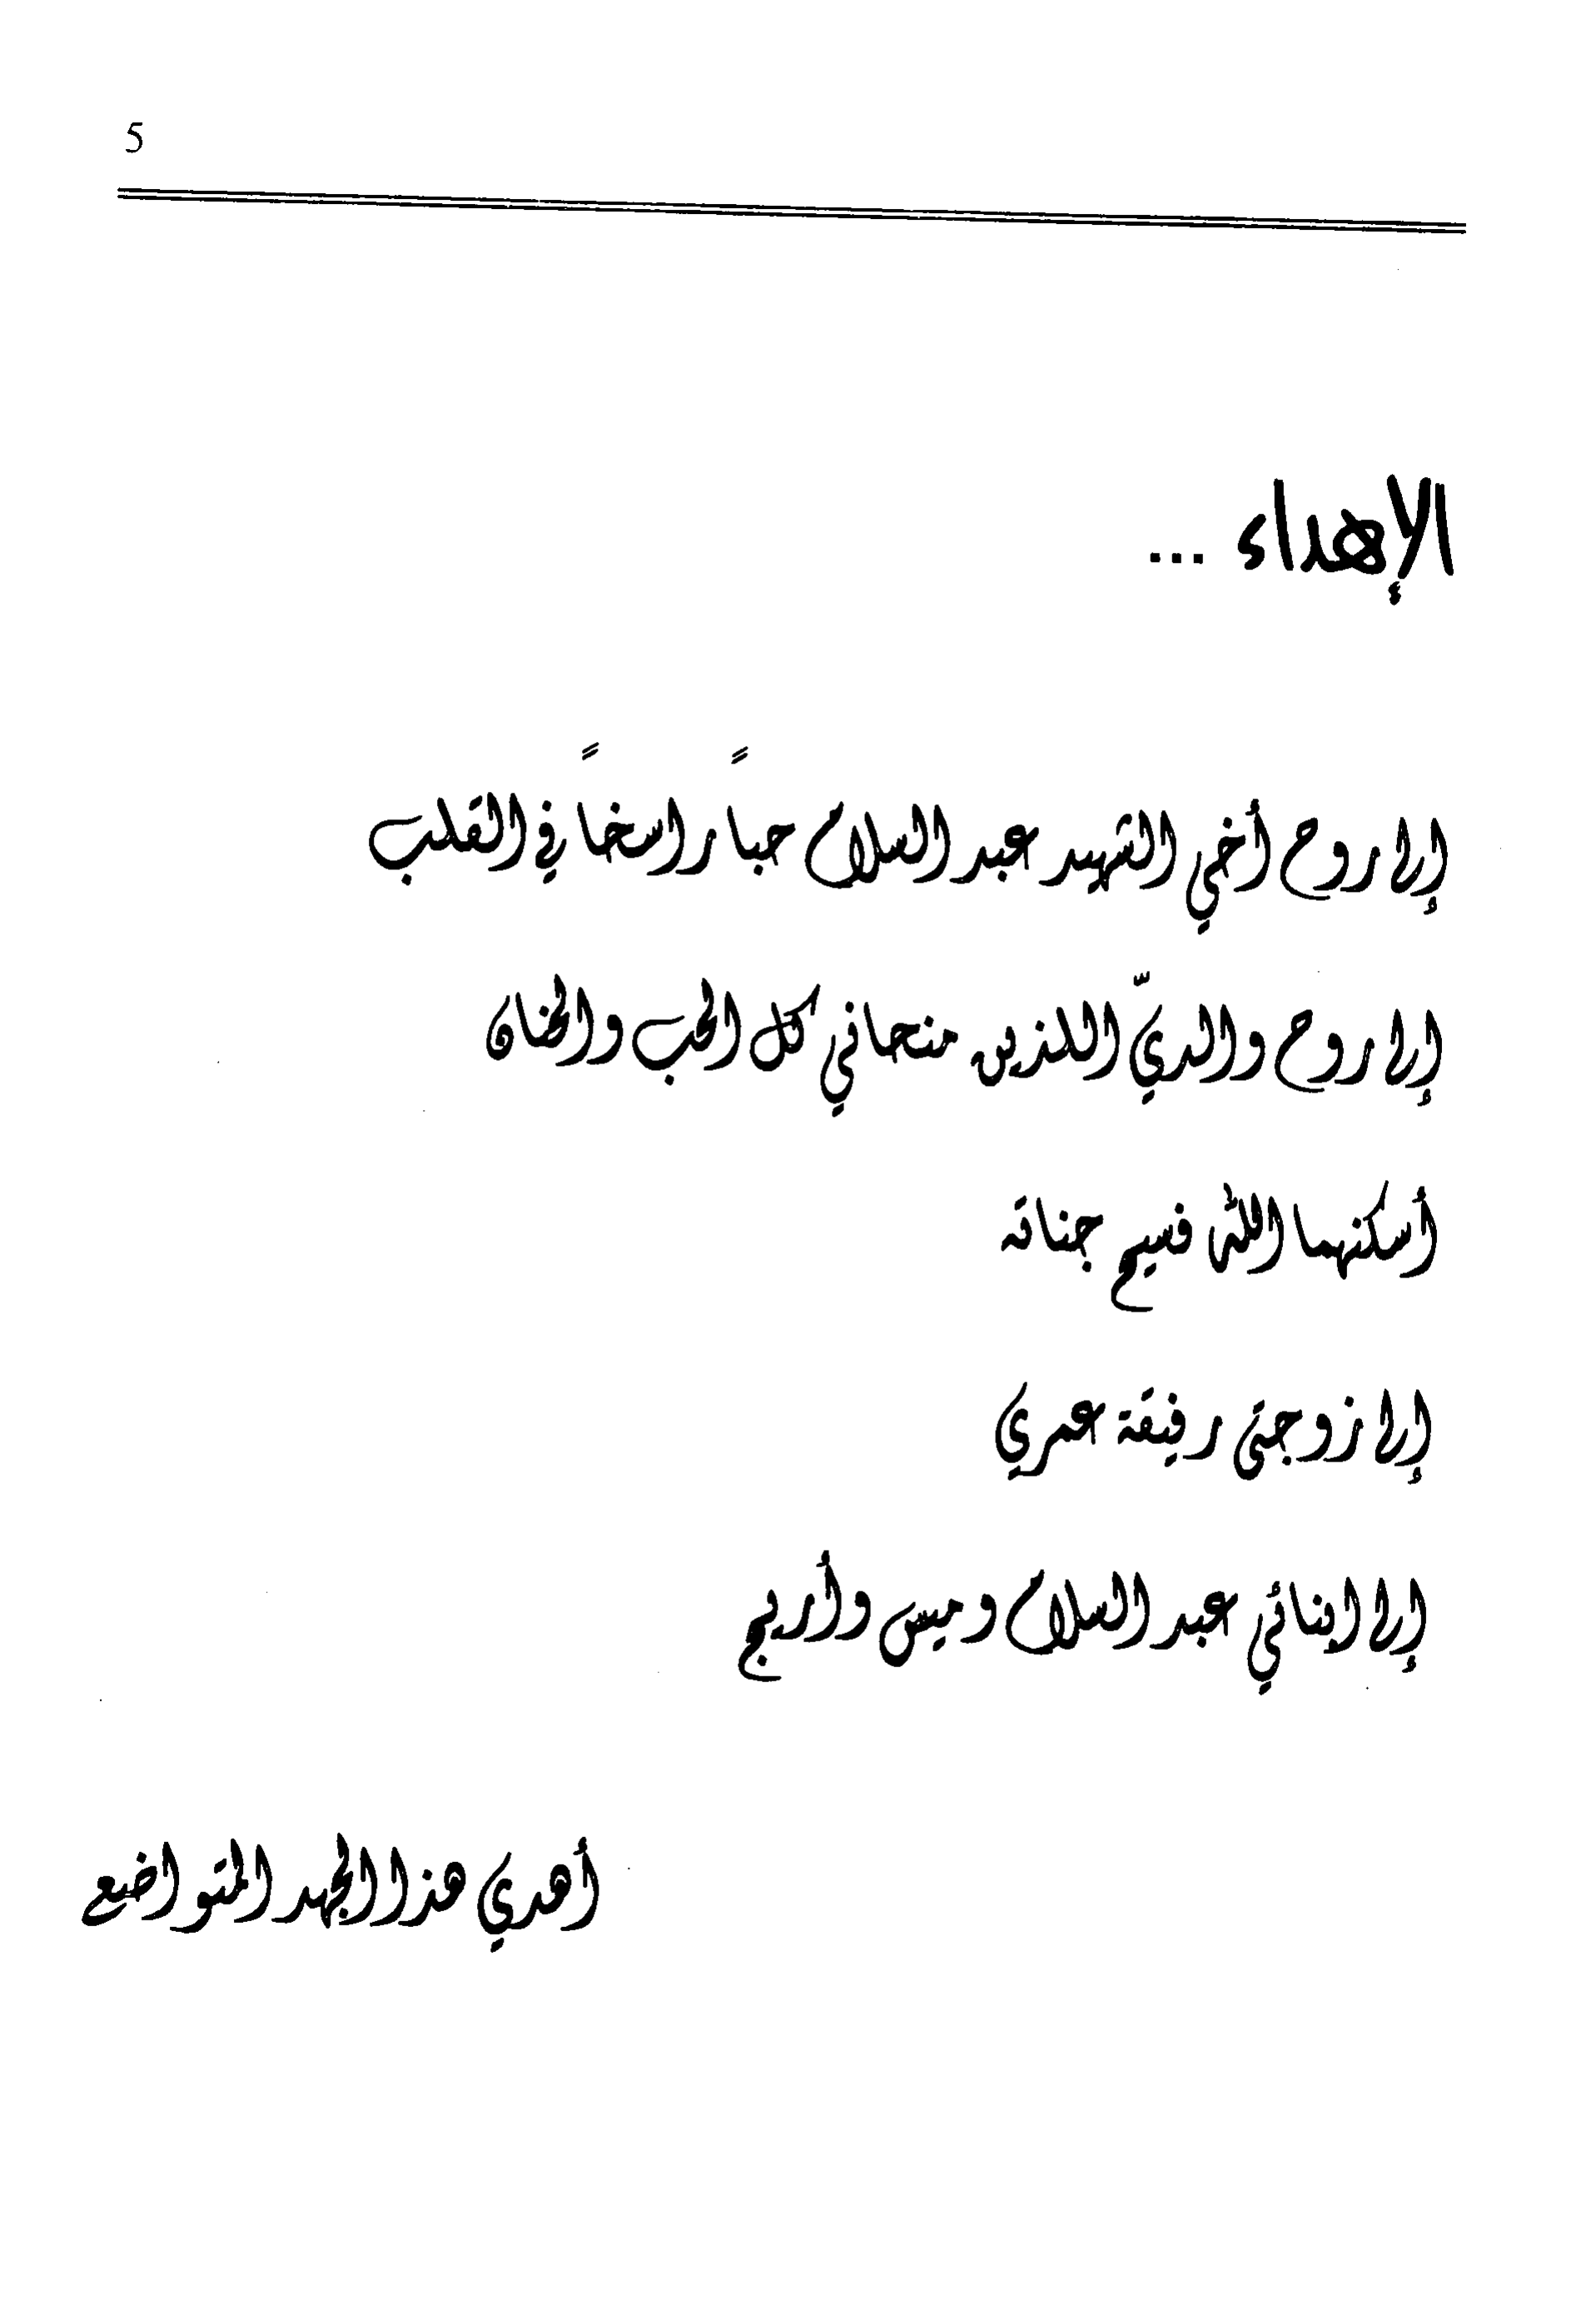 5
الإهداء ...
إلى روح أخي الشهيد عبد السلام حباً راسخاً في القلب
إلى روح والديّ اللذين منحاني كل الحب والحنان
أسكنهما الله فسيح جناته
إلى زوجتي رفيقة عمري
إلى ابنائي عبد السلام وميس وأريج
أهدي هذا الجهد المتواضع